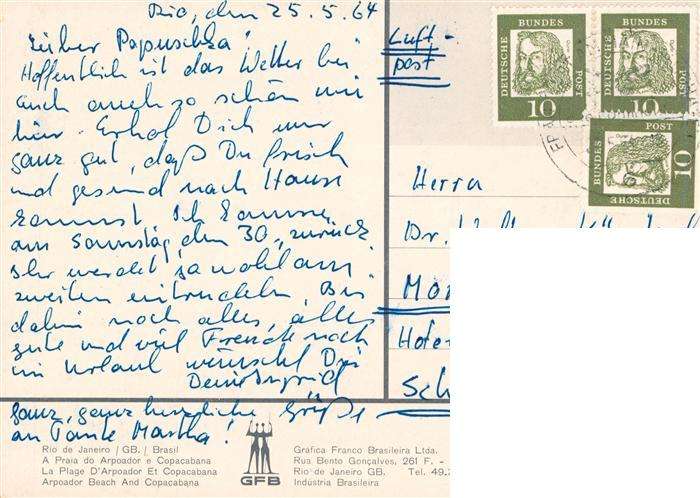 Rio, den 25.5.64
Lieber Papuschka!
Hoffentlich ist das Wetter bei
Euch auch so schön wie
hier. Erhol Dich nur
ganz gut, daß Du frisch
und gesund nach Hause
kommst. Ich komme
am Sonnstag, den 30., zurück
Ihr werdet ja wohl am
zweiten eintrudeln. Bis
dahin noch alles, alles
gute und viel Freude noch
im Urlaub wünscht Dir
Deine Ingrid
Ganz, ganz herzliche Grüße
an Tante Martha!
Luft-
post
DEUTSCHE BUNDES POST
10
DEUTSCHE BUNDES POST
10
DEUTSCHE BUNDES POST
10
Herrn
Dr.
Hote
Sch
Rio de Janeiro /GB./ Brasil
A Praia do Arpoador e Copacabana
La Plage D'Arpoador Et Copacabana
Arpoador Beach And Copacabana
GFB
Gráfica Franco Brasileira Ltda.
Rua Bento Gonçalves, 261 F. -
Rio de Janeiro GB. Tel. 49.
Indústria Brasileira